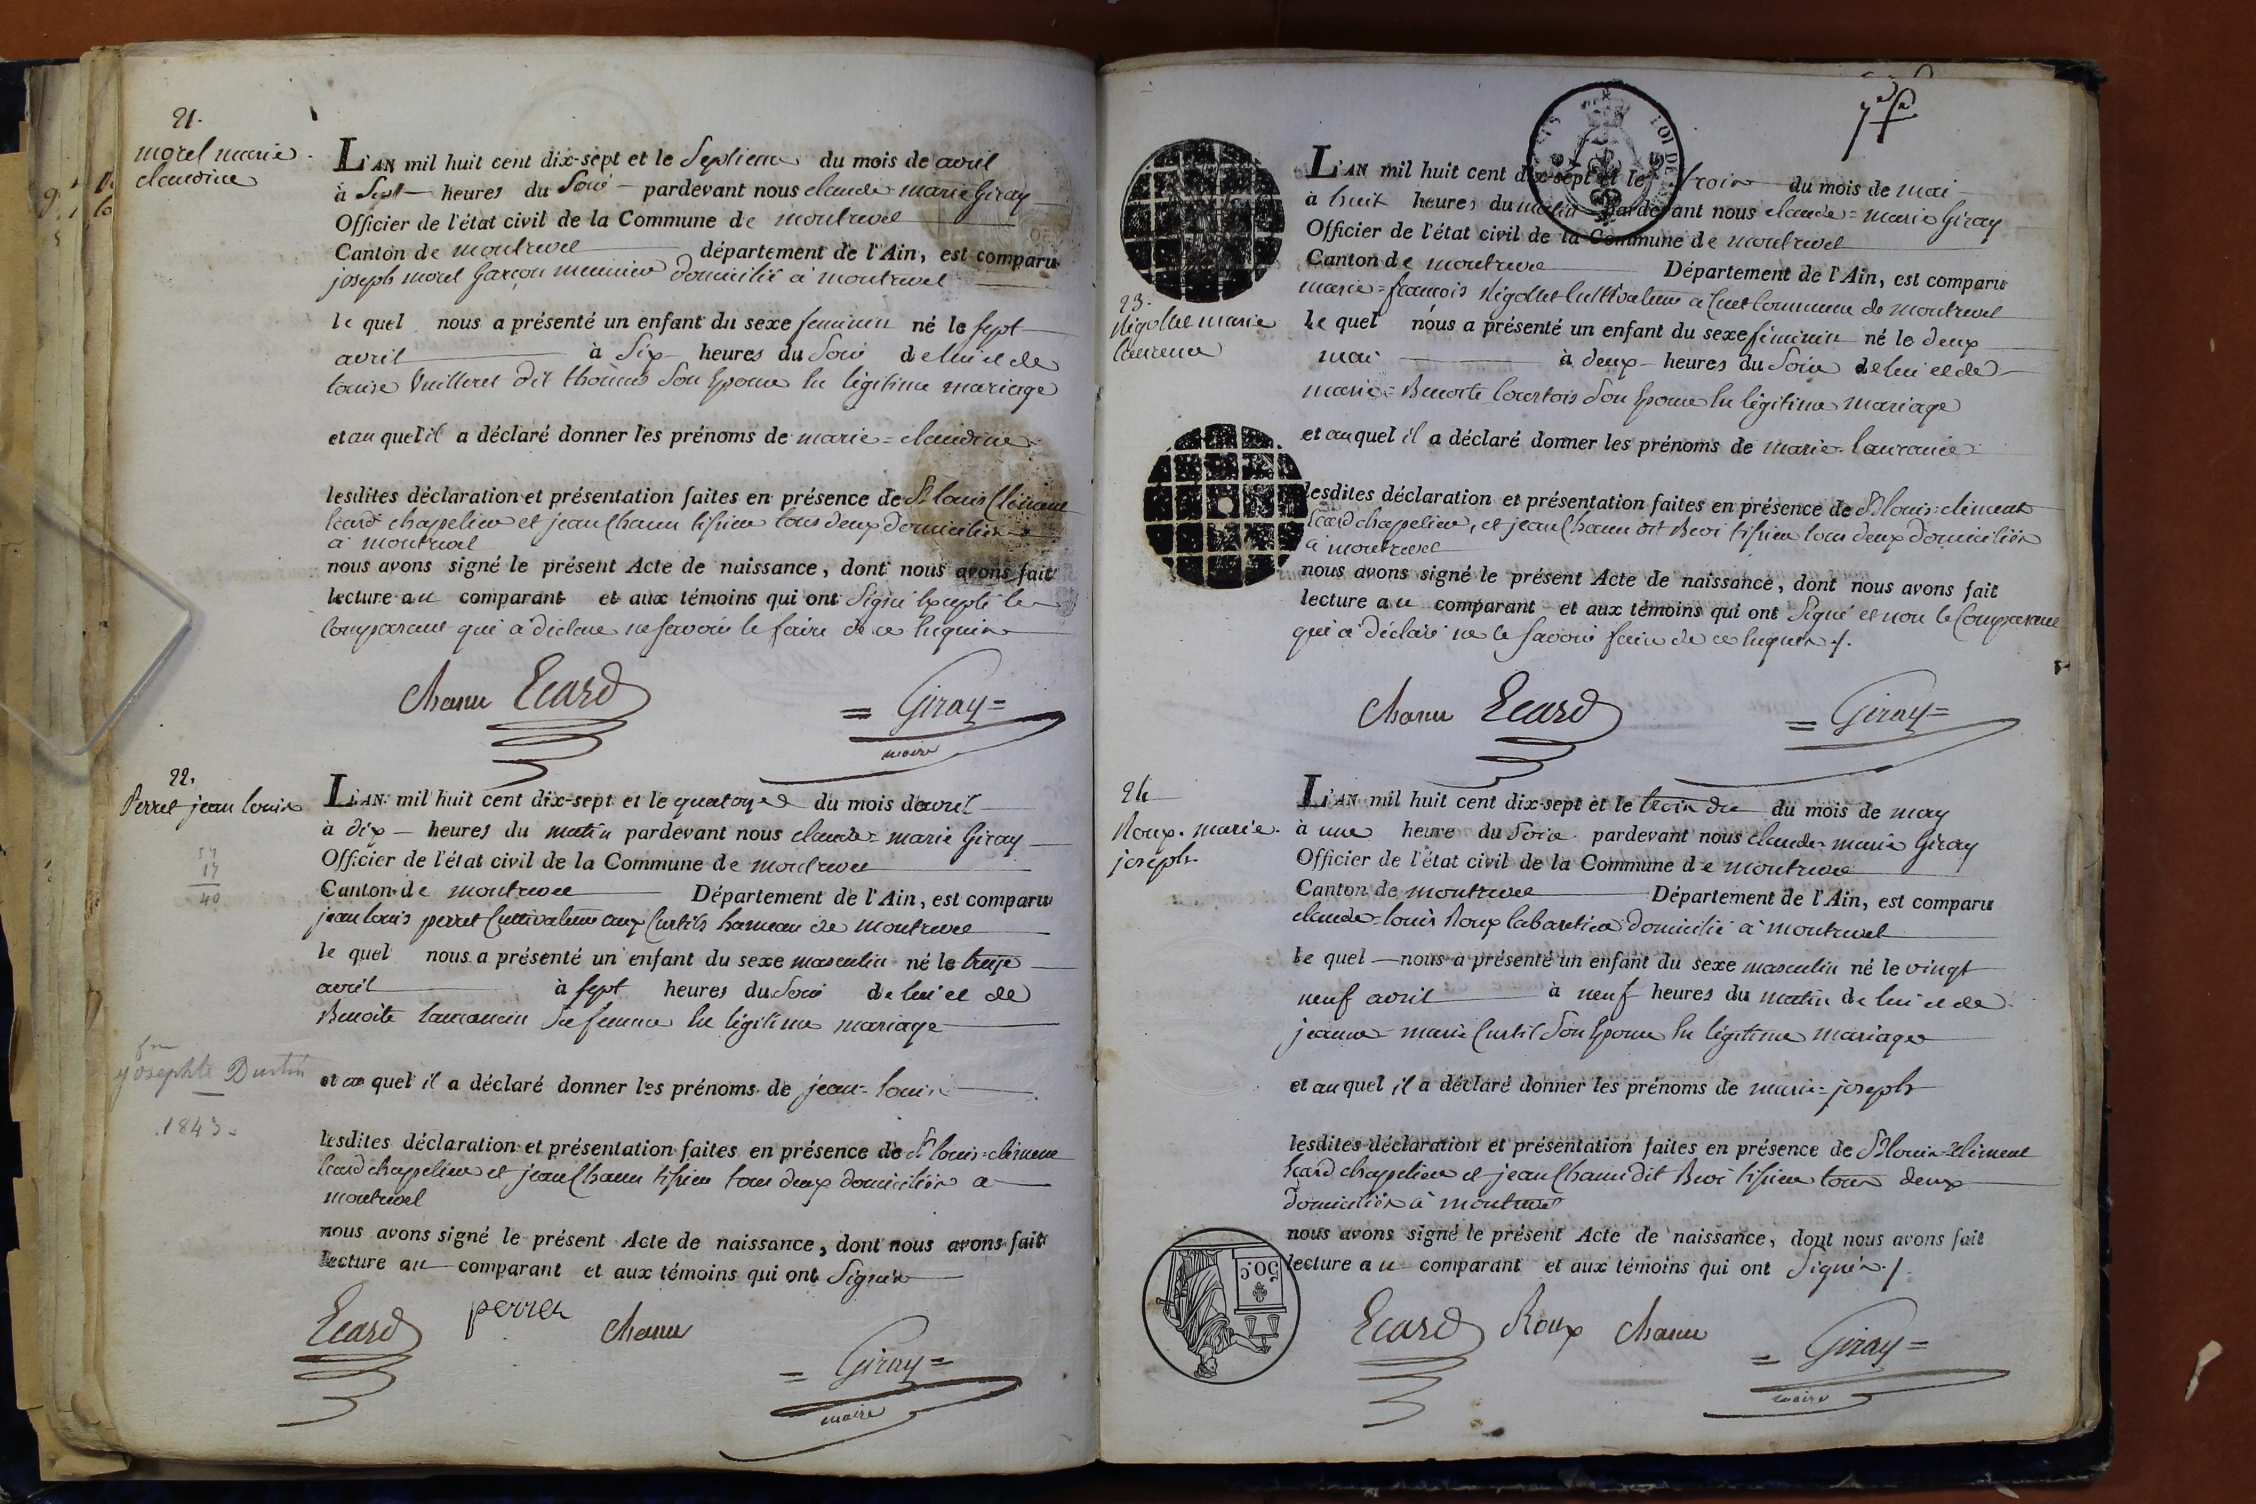 21.
morel marie
claudine
L'AN mil huit cent dix-sept et le Septieme du mois de avril
à Sept heures du Soir pardevant nous claude marie Giray
Officier de l'état civil de la Commune de montrevel
Canton de montrevel département de l'Ain, est comparu
joseph morel Garçon meunier domicilié à montrevel
le quel nous a présenté un enfant du sexe feminin né le sept
avril à Six heures du Soir de lui et de
louise Vuilleret dit thomas Son Epouse En légitime mariage
et au quel il a déclaré donner les prénoms de marie = claudine
lesdites déclaration et présentation faites en présence de Sr louis Clément
Ecard chapelier et jean Chanu tissier tous deux domiciliés
à montrevel
nous avons signé le présent Acte de naissance, dont nous avons fait
lecture au comparant et aux témoins qui ont Signé Excepté le
Comparant qui a déclaré ne savoir le faire de ce Requis
chanu Ecard = Giray =
maire
22.
Perret jean louis
57
17
40
fe
josephte Durtin
1843
L'AN mil huit cent dix-sept et le quatorze du mois d'avril
à dix heures du matin pardevant nous claude = marie Giray
Officier de l'état civil de la Commune de montrevel
Canton de montrevel Département de l'Ain, est comparu
jean louis perret Cultivateur aux Curtils hameau de montrevel
le quel nous a présenté un enfant du sexe masculin né le treize
avril à sept heures du Soir de lui et de
Benoite Sa femme En légitime mariage
et au quel il a déclaré donner les prénoms de jean = louis
lesdites déclaration et présentation faites en présence de Sr louis = clément
Ecard chappelier et jean Chanu tissier tous deux domiciliés à
montrevel
nous avons signé le présent Acte de naissance, dont nous avons fait
lecture au comparant et aux témoins qui ont Signés
Ecard perret chanu = Giray =
maire
7e f
23.
Nigollet marie
laurence
L'AN mil huit cent dix-sept et le trois du mois de mai
à huit heures du matin pardevant nous claude = marie Giray
Officier de l'état civil de la Commune de montrevel
Canton de montrevel Département de l'Ain, est comparu
marie = françois Nigollet Cultivateur à Cuet Commune de montrevel
le quel nous a présenté un enfant du sexe féminin né le deux
mai à deux heures du Soir de lui et de
marie = Benoite Courtois Son Epouse En légitime mariage
et au quel il a déclaré donner les prénoms de marie laurence
lesdites déclaration et présentation faites en présence de Sr louis = clément
Ecard chappelier, et jean Chanu dit Broi tissier tous deux domiciliés
à montrevel
nous avons signé le présent Acte de naissance, dont nous avons fait
lecture au comparant et aux témoins qui ont Signé et non le Comparant
qui a déclaré ne le Savoir faire de ce Requis ./.
chanu Ecard = Giray =
24
Roux marie
joseph
L'AN mil huit cent dix-sept et le trois du du mois de may
à une heure du Soir pardevant nous claude marie Giray
Officier de l'état civil de la Commune de montrevel
Canton de montrevel Département de l'Ain, est comparu
claude = louis Roux domicilié à montrevel
le quel nous a présenté un enfant du sexe masculin né le vingt
neuf avril à neuf heures du matin de lui et de
jeanne = marie Curtil Son Epouse En légitime mariage
et au quel il a déclaré donner les prénoms de marie = joseph
lesdites déclaration et présentation faites en présence de Sr louis = clément
Ecard chappelier et jean Chanu dit Broi tissier tous deux
domiciliés à montrevel
nous avons signé le présent Acte de naissance, dont nous avons fait
lecture au comparant et aux témoins qui ont Signés ./.
50 c.
Ecard Roux chanu = Giray =
maire